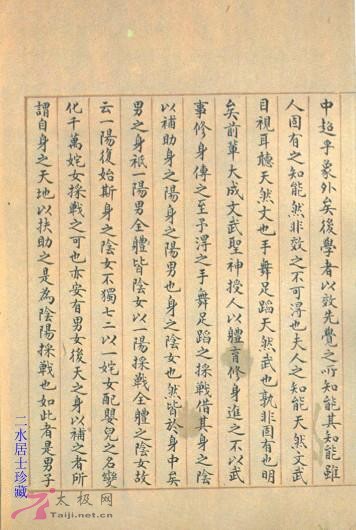 中超乎象外矣後學者以效先覺之所知能其知能雖
人固有之知能然非效之不可得也夫人之知能天然文武
目視耳聽天然文也手舞足蹈天然武也孰非固有也明
矣前輩大成文武聖神授人以體育修身進之不以武
事修身傳之至予得之手舞足蹈之採戰借其身之陰
以補助身之陽身之陽男也身之陰女也然皆於身中矣
男之身祇一陽男全體皆陰女以一陽採戰全體之陰女故
云一陽復始斯身之陰女不獨七二以一姹女配嬰兒之名變
化千萬姹女採戰之可也亦安有男女後天之身以補之者所
謂自身之天地以扶助之是為陰陽採戰也如此者是男子
二水居士珍藏
太极网
Taiji.net.cn